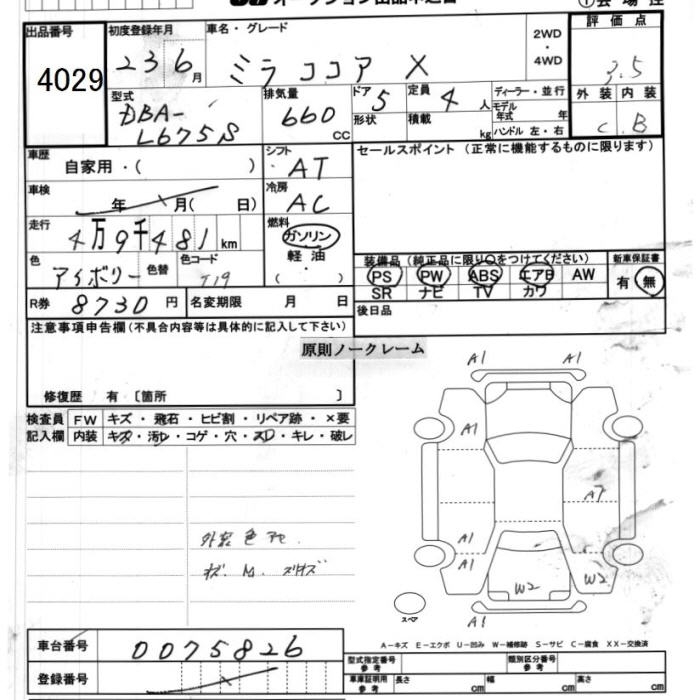 出品番号 4029
初度登録年月 23 6月
車名・グレード ミラ ココア X
2WD・4WD
評価点 3.5
型式 DBA-L675S
排気量 660 CC
ドア 5
形状
定員 4人
積載 kg
ディーラー・並行
モデル年式 年
ハンドル 左・右
外装 C
内装 B
車歴 自家用・( )
シフト AT
セールスポイント (正常に機能するものに限ります)
車検 年 月( 日)
冷房 AC
走行 4万9千481km
燃料 ガソリン 軽油 ( ・ )
色 アイボリー 色替
色コード T19
装備品 (純正品に限り○をつけてください)
PS PW ABS エアB AW
SR ナビ TV カワ
新車保証書 有 無
R券 8730円
名変期限 月 日
後日品
注意事項申告欄(不具合内容等は具体的に記入して下さい)
原則ノークレーム
修復歴 有 〔箇所 〕
検査員記入欄
FW キズ・飛石・ヒビ割・リペア跡・×要
内装 キズ・汚レ・コゲ・穴・スレ・キレ・破レ
A1 A1
A1
A7
A1
A1
W2 W2
スペア A1
外装色
A-キズ E-エクボ U-凹み W-補修跡 S-サビ C-腐食 XX-交換済
車台番号 0075826
登録番号
型式指定番号 参考
類別区分番号 参考
車庫証明用 参考 長さ cm 幅 cm 高さ cm